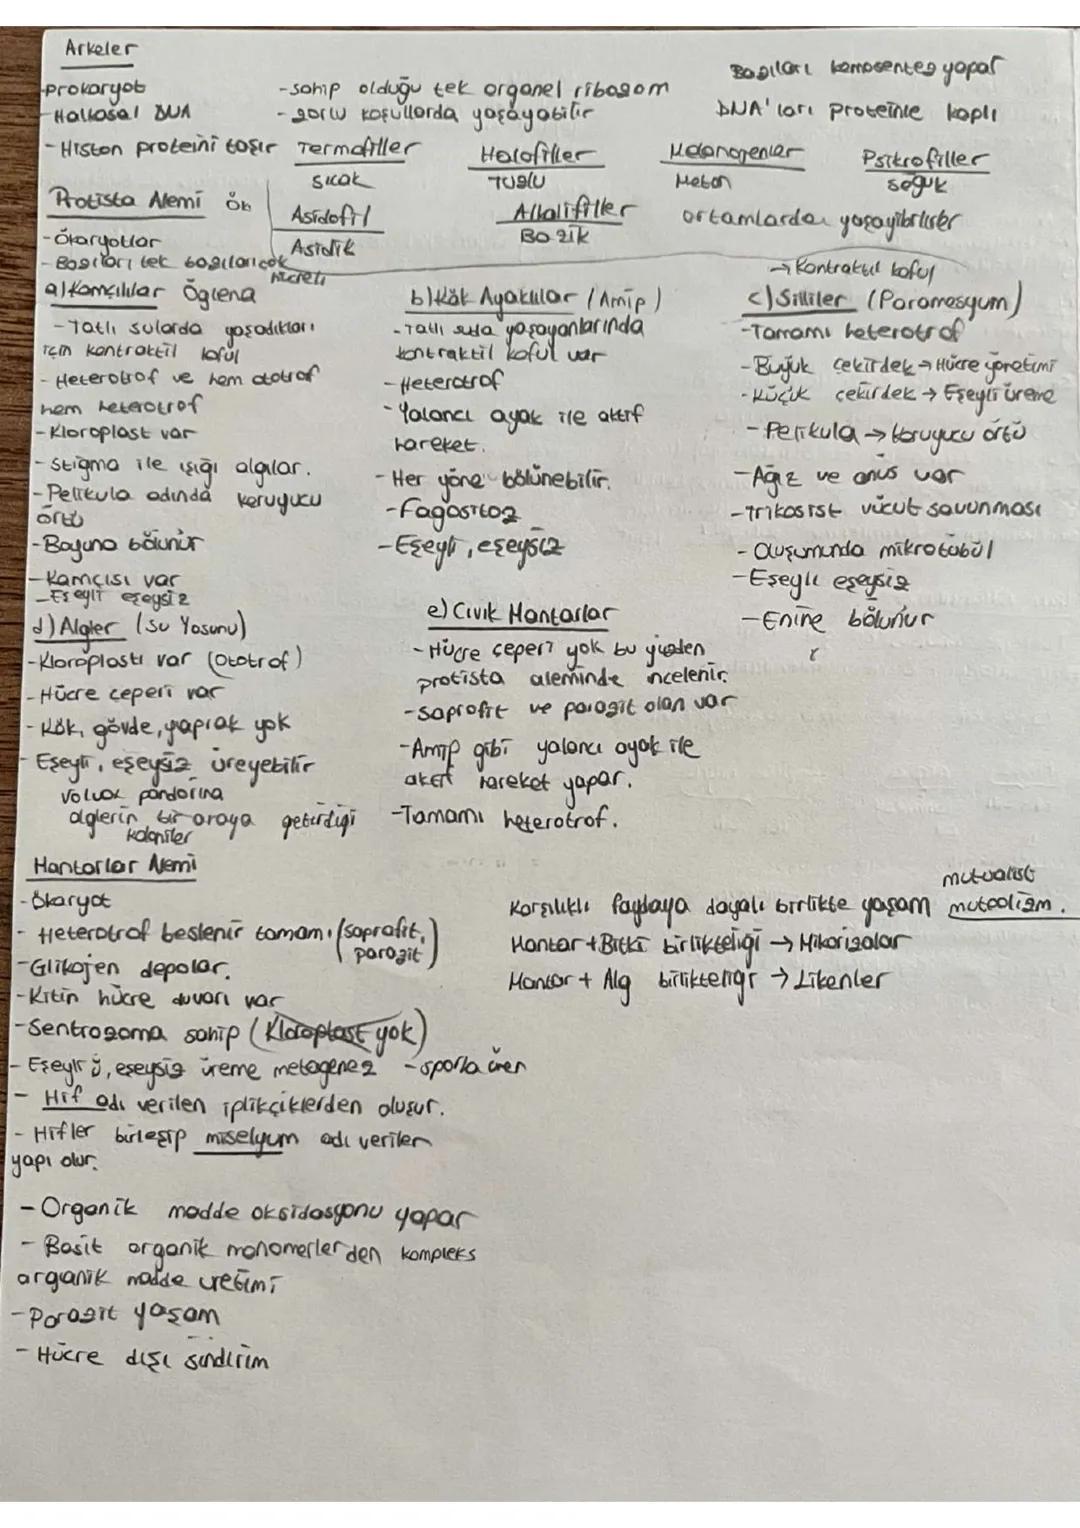 Arkeler
-prokaryot
-Halkasal DNA
-Histon proteini taşır
-sahip olduğu tek organel ribozom
-zorlu koşullarda yaşayabilir
Bazıları kemosentez yapar
DNA'ları proteinle kaplı
Termofiller
Sıcak
Halofiller
Tuzlu
Metanojenler
Metan
Psikrofiller
Soğuk
Asidofil
Asidik
Alkalifiller
Bazik
ortamlarda yaşayabilirler
Protista Alemi Ök
-Ökaryotlar
-Bazıları tek bazıları çok
hücreli
a) Kamçılılar Öglena
-Tatlı sularda yaşadıkları
için kontraktil koful
-Heterotrof ve hem ototrof
hem heterotrof
-Kloroplast var
-Stigma ile ışığı algılar.
-Pelikula adında koruyucu
örtü
-Boyuna bölünür
-Kamçısı var
-Eşeyli eşeysiz
b) Kök Ayaklılar (Amip)
-Tatlı suda yaşayanlarında
kontraktil koful var
-Heterotrof
-Yalancı ayak ile aktif
hareket.
-Her yöne bölünebilir.
-Fagositoz
-Eşeyli, eşeysiz
→ Kontraktil koful
c) Silliler (Paramesyum)
-Tamamı heterotrof
-Büyük çekirdek → Hücre yönetimi
-Küçük çekirdek → Eşeyli üreme
-Pelikula → koruyucu örtü
-Ağız ve anüs var
-Trikosist vücut savunması
-Oluşumunda mikrotübül
-Eşeyli eşeysiz
-Enine bölünür
d) Algler (Su Yosunu)
-Kloroplastı var (Ototrof)
-Hücre çeperi var
-Kök, gövde, yaprak yok
-Eşeyli, eşeysiz üreyebilir
Volvox pandorina
alglerin bir araya getirdiği
koloniler
e) Cıvık Mantarlar
-Hücre çeperi yok bu yüzden
protista aleminde incelenir.
-Saprofit ve parazit olan var
-Amip gibi yalancı ayak ile
aktif hareket yapar.
-Tamamı heterotrof.
Mantarlar Alemi
-Ökaryot
-Heterotrof beslenir tamamı (saprofit,
parazit)
-Glikojen depolar.
-Kitin hücre duvarı var
-Sentrozoma sahip (Kloroplast yok)
-Eşeyli ü, eşeysiz üreme metagenez -sporla ürer
-Hif adı verilen iplikçiklerden oluşur.
-Hifler birleşip miselyum adı verilen
yapı olur.
-Organik madde oksidasyonu yapar
-Basit organik monomerlerden kompleks
organik madde üretimi
-Parazit yaşam
-Hücre dışı sindirim
mutualist
Karşılıklı faydaya dayalı birlikte yaşam muteolizm.
Mantar + Bitki birlikteliği → Mikorizalar
Mantar + Alg birlikteliği → Likenler